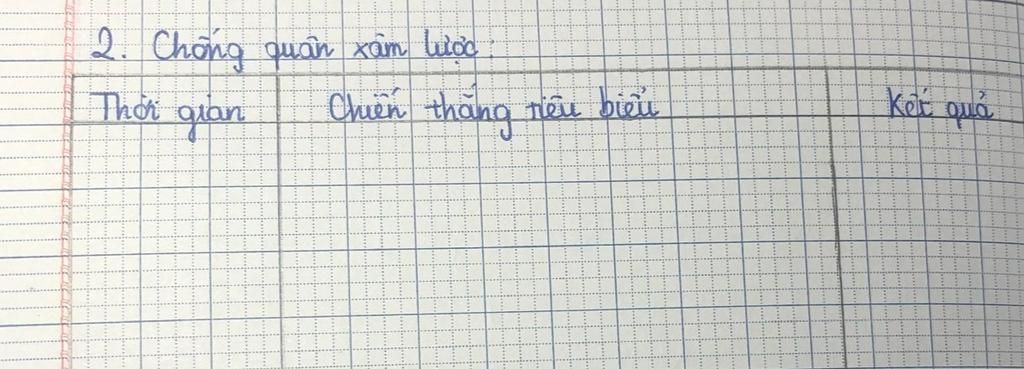 2. Chống quân xâm lược:
Thời gian Chiến thắng tiêu biểu Kết quả